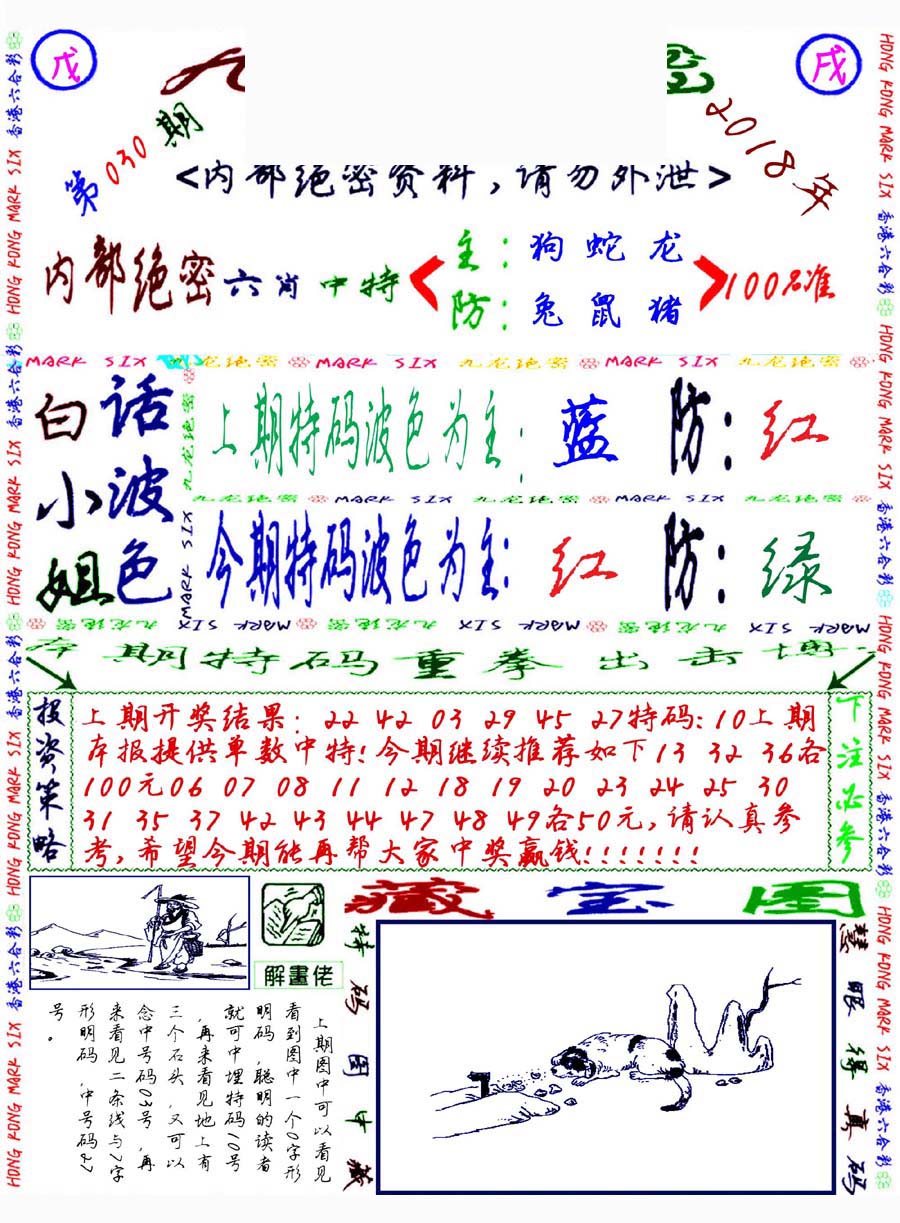 戊
戌
第030期
2018年
<内部绝密资料，请勿外泄>
内部绝密六肖中特
主：狗 蛇 龙
防：兔 鼠 猪
100%准
MARK SIX 九龙绝密 MARK SIX 九龙绝密 MARK SIX 九龙绝密
白话小波姐色
上期特码波色为主：蓝 防：红
九龙绝密 MARK SIX 九龙绝密 MARK SIX 九龙绝密
今期特码波色为主：红 防：绿
九龙绝密 MARK SIX
本期特码重拳出击博
投资策略
上期开奖结果：22 42 03 29 45 27特码：10上期
本报提供单数中特！今期继续推荐如下13 32 36各
100元06 07 08 11 12 18 19 20 23 24 25 30
31 35 37 42 43 44 47 48 49各50元，请认真参
考，希望今期能再帮大家中奖赢钱！！！！！！！
下注必参
藏宝图
解畫佬
上期图中可以看见
看到图中一个0字形
明码，聪明的读者
就可中埋特码10号
，再来看见地上有
三个石头，又可以
念中号码03号，再
来看见二条线与7字
形明码，中号码27
号。
特码图中藏
慧眼得真码
香港六合彩 HONG KONG MARK SIX 香港六合彩 HONG KONG MARK SIX 香港六合彩 HONG KONG MARK SIX 香港六合彩 HONG KONG MARK SIX
HONG KONG MARK SIX 香港六合彩 HONG KONG MARK SIX 香港六合彩 HONG KONG MARK SIX 香港六合彩 HONG KONG MARK SIX 香港六合彩